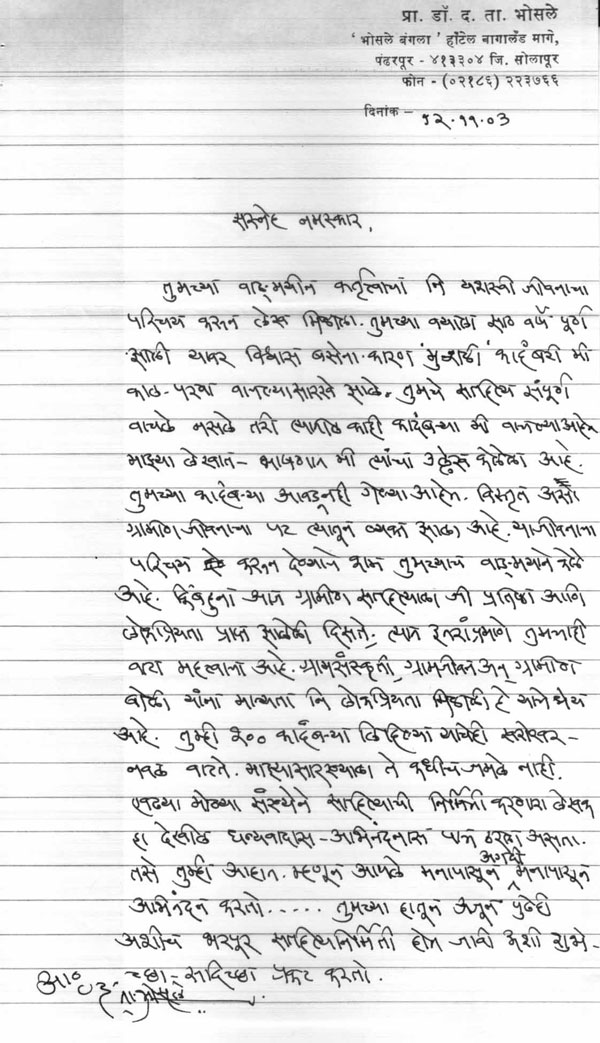 प्रा. डॉ. द. ता. भोसले
'भोसले बंगला' हॉटेल नागालँड मागे,
पंढरपूर - ४१३३०४ जि. सोलापूर
फोन - (०२१८६) २२३७६६
दिनांक - १२.११.०३
सस्नेह नमस्कार,
तुमच्या वाङ्मयीन कर्तृत्वाचा नि यशस्वी जीवनाचा
परिचय करून लेख मिळाला. तुमच्या वयाला साठ वर्षे पूर्ण
झाली यावर विश्वास बसेना. कारण कादंबरी मी
काल-परवा वाचल्यासारखे झाले. तुमचे साहित्य संपूर्ण
वाचले नसले तरी त्यातील काही कादंबऱ्या मी वाचल्या आहेत
माझ्या लेखात-भाषणात मी त्यांचा उल्लेख केलेला आहे.
तुमच्या कादंबऱ्या आवडूनही गेल्या आहेत. विस्तृत असा
ग्रामीण जीवनाचा पट त्यातून व्यक्त झाला आहे. या जीवनाचा
परिचय करून देण्याचे काम तुमच्याच वाङ्मयाने केले
आहे. किंबहुना आज ग्रामीण साहित्याला जी प्रतिष्ठा आणि
लोकप्रियता प्राप्त झालेली दिसते, त्यात इतरांप्रमाणे तुमचाही
वाटा महत्वाचा आहे. ग्रामसंस्कृती, ग्रामजीवन अन् ग्रामीण
बोली यांना मान्यता नि लोकप्रियता मिळाली हे याचे श्रेय
आहे. तुम्ही २०० कादंबऱ्या लिहिल्या याचेही खरोखर-
नवल वाटते. माझ्यासारख्याला ते कधीच जमले नाही.
एवढ्या मोठ्या संख्येने साहित्याची निर्मिती करणारा लेखक
हा देखील धन्यवादास-अभिनंदनास पात्र ठरत असतो.
तसे तुम्ही आहात. म्हणून आपले मनापासून अगदी मनापासून
अभिनंदन करतो..... तुमच्या हातून अजून पुढेही
अशीच भरपूर साहित्यनिर्मिती होत जावी अशी शुभे-
च्छा - सदिच्छा प्रकट करतो.
आ० द. ता. भोसले